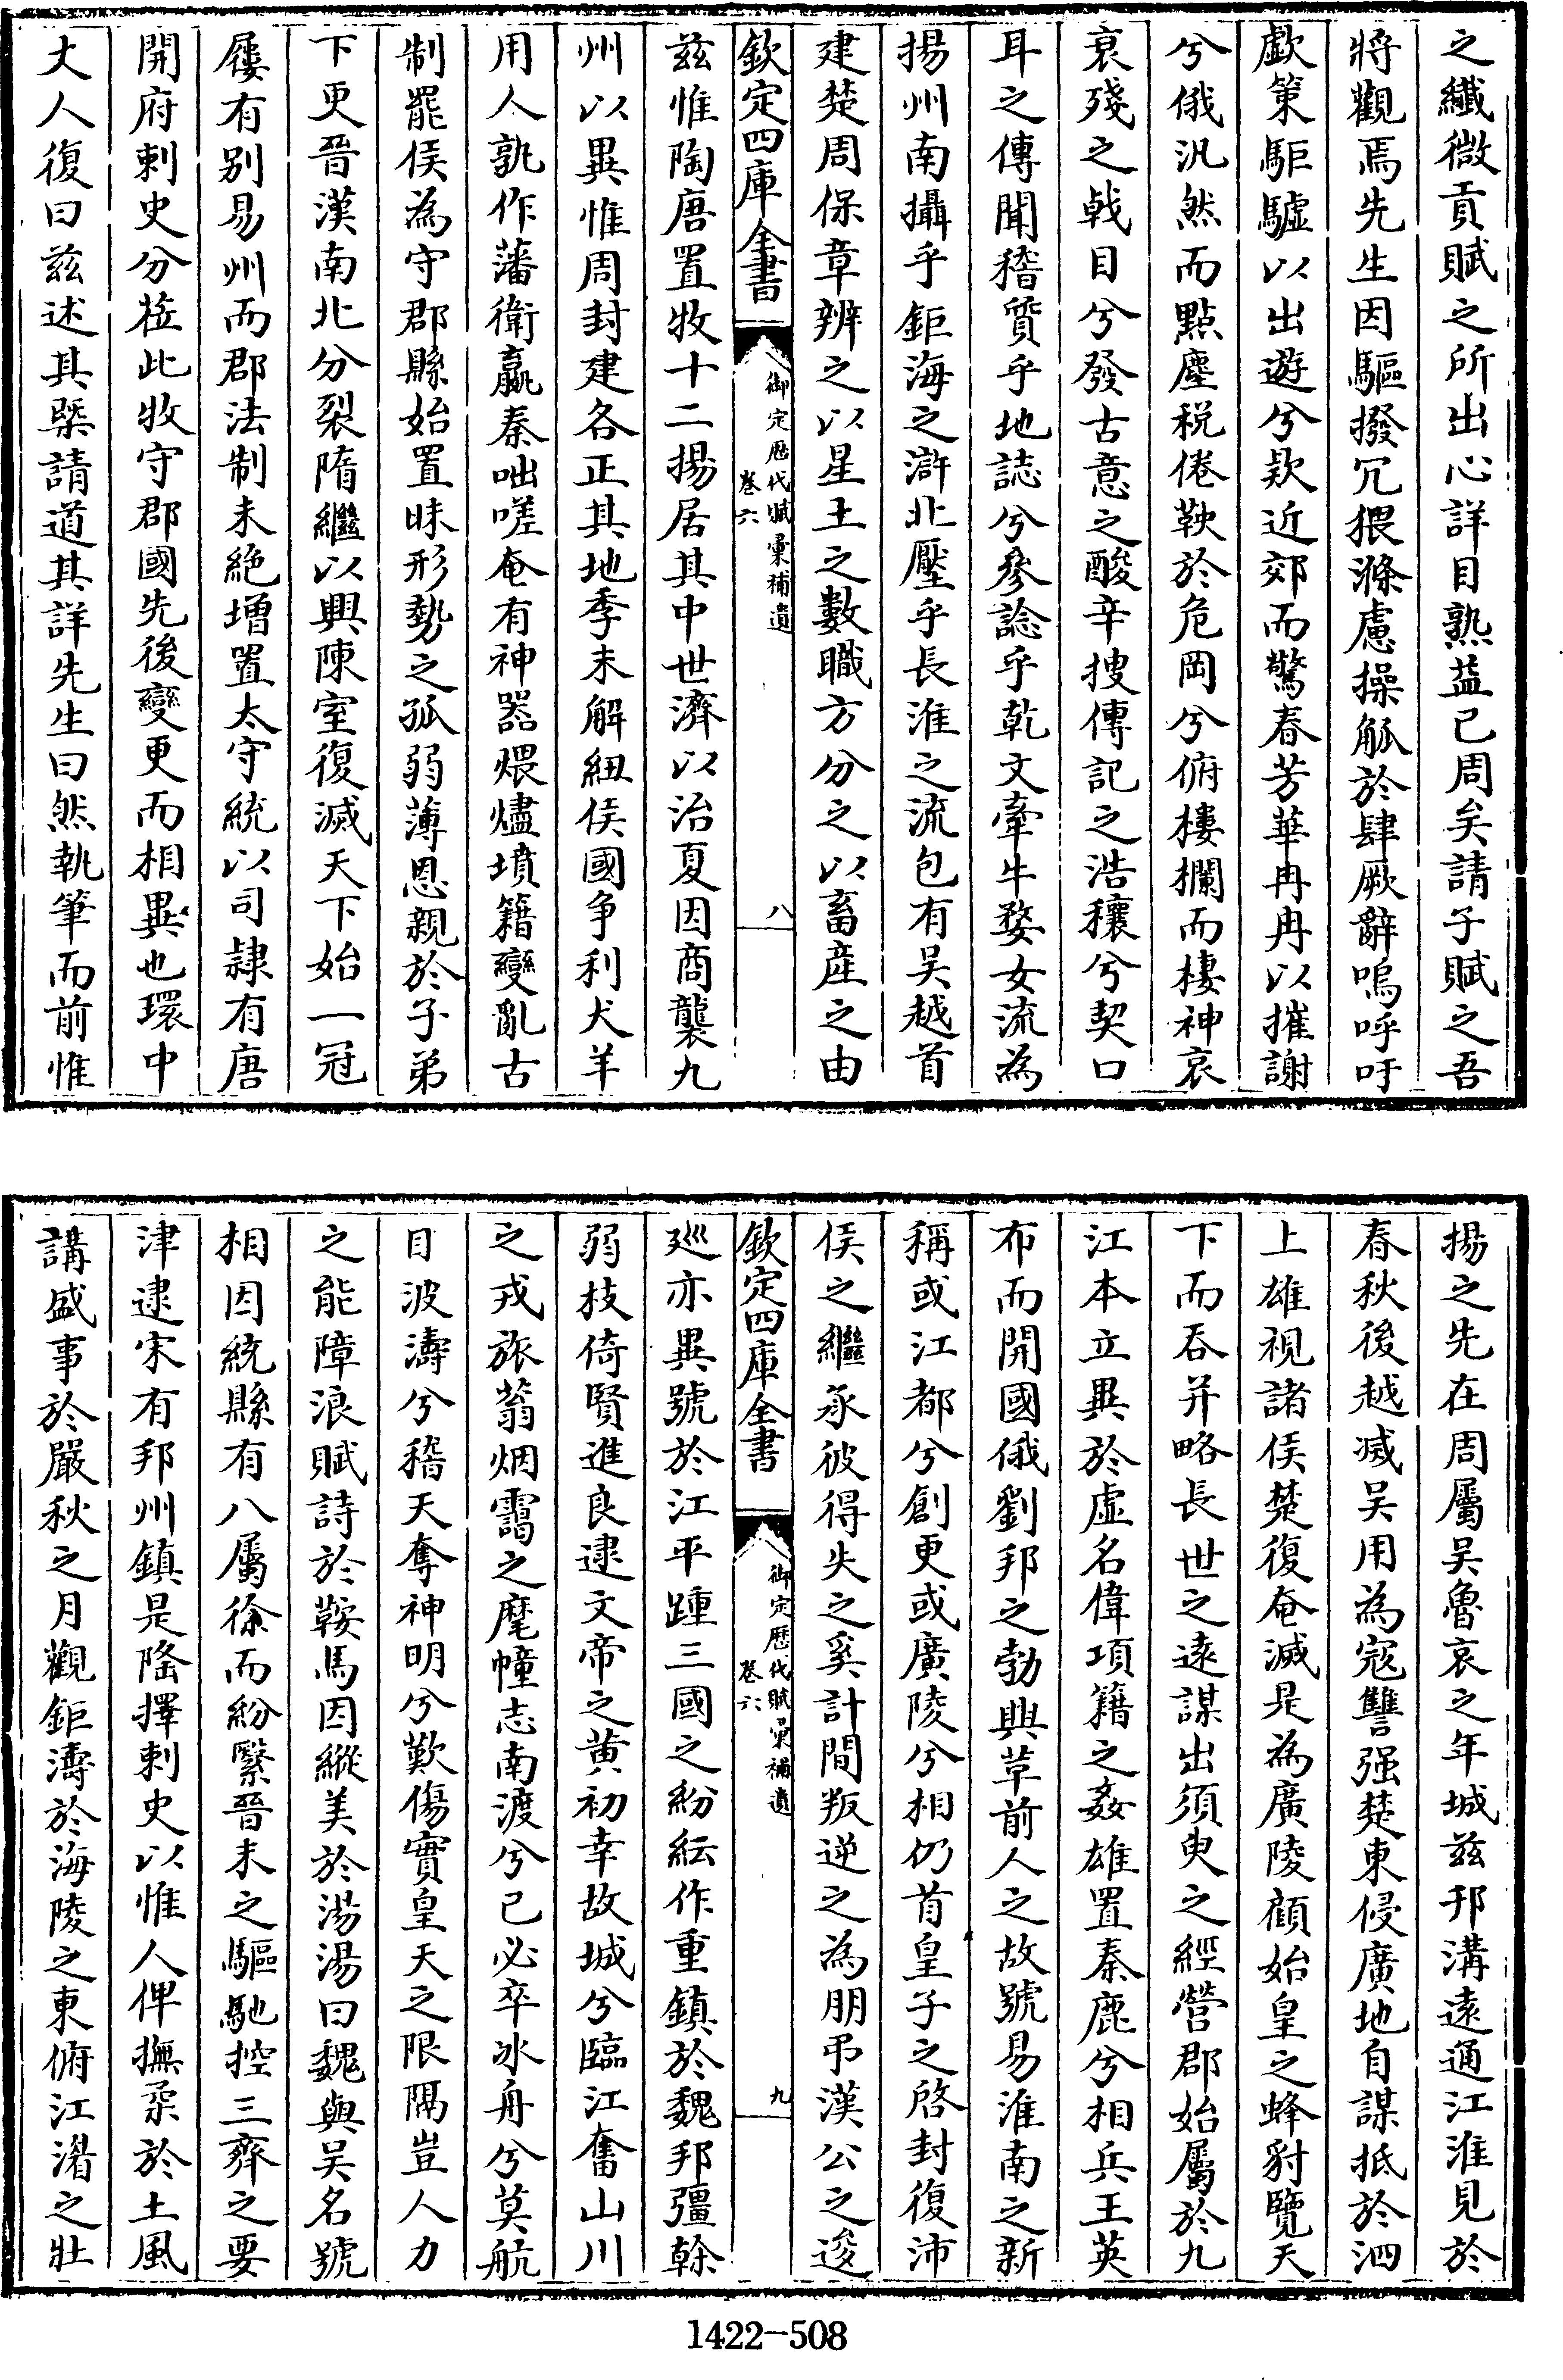 之纎微貢賦之所出心詳目熟益已周矣請子賦之吾
將觀焉先生因驅撥冗猥滌慮操觚於肆厥辭嗚呼吁
歔策駏驉以出遊兮欵近郊而驚春芳華冉冉以摧謝
兮俄汎然而點塵税倦鞅於危岡兮俯樓欄而棲神哀
衰殘之戟目兮發古意之酸辛搜傳記之浩穰兮契口
耳之傳聞稽質乎地誌兮參諗乎乾文牽牛婺女流為
揚州南攝乎鉅海之滸北壓乎長淮之流包有吴越首
建楚周保章辨之以星土之數職方分之以畜産之由
欽定四庫全書
御定歴代賦彚補遺
卷六
八
兹惟陶唐置牧十二揚居其中世濟以治夏因商襲九
州以異惟周封建各正其地季末解紐侯國争利犬羊
用人孰作藩衛嬴秦咄嗟奄有神器煨燼墳籍變亂古
制罷侯為守郡縣始置昧形勢之孤弱薄恩親於子弟
下更晉漢南北分裂隋繼以興陳室復滅天下始一冠
屨有别易州而郡法制未絶增置太守統以司隷有唐
開府刺史分莅此牧守郡國先後變更而相異也環中
丈人復曰兹述其槩請道其詳先生曰然執筆而前惟
揚之先在周屬吴魯哀之年城兹邗溝遠通江淮見於
春秋後越滅吴用為寇讐强楚東侵廣地自謀抵於泗
上雄視諸侯楚復奄滅是為廣陵顧始皇之蜂豺覽天
下而吞并略長世之遠謀出須臾之經營郡始屬於九
江本立異於虚名偉項籍之姦雄置秦鹿兮相兵王英
布而開國俄劉邦之勃興草前人之故號易淮南之新
稱或江都兮創更或廣陵兮相仍首皇子之啓封復沛
侯之繼承彼得失之奚計間叛逆之為朋弔漢公之逡
欽定四庫全書
御定歴代賦彚補遺
卷六
九
廵亦異號於江平踵三國之紛紜作重鎮於魏邦彊榦
弱枝倚賢進良逮文帝之黄初幸故城兮臨江奮山川
之戎旅蓊烟靄之麾幢志南渡兮已必卒冰舟兮莫航
目波濤兮稽天奪神明兮歎傷實皇天之限隔豈人力
之能障浪賦詩於鞍馬因縱美於湯湯曰魏與吴名號
相因統縣有八屬徐而紛繄晉末之驅馳控三齊之要
津逮宋有邦州鎮是隆擇刺史以惟人俾撫柔於土風
講盛事於嚴秋之月觀鉅濤於海陵之東俯江渚之壯
1422-508